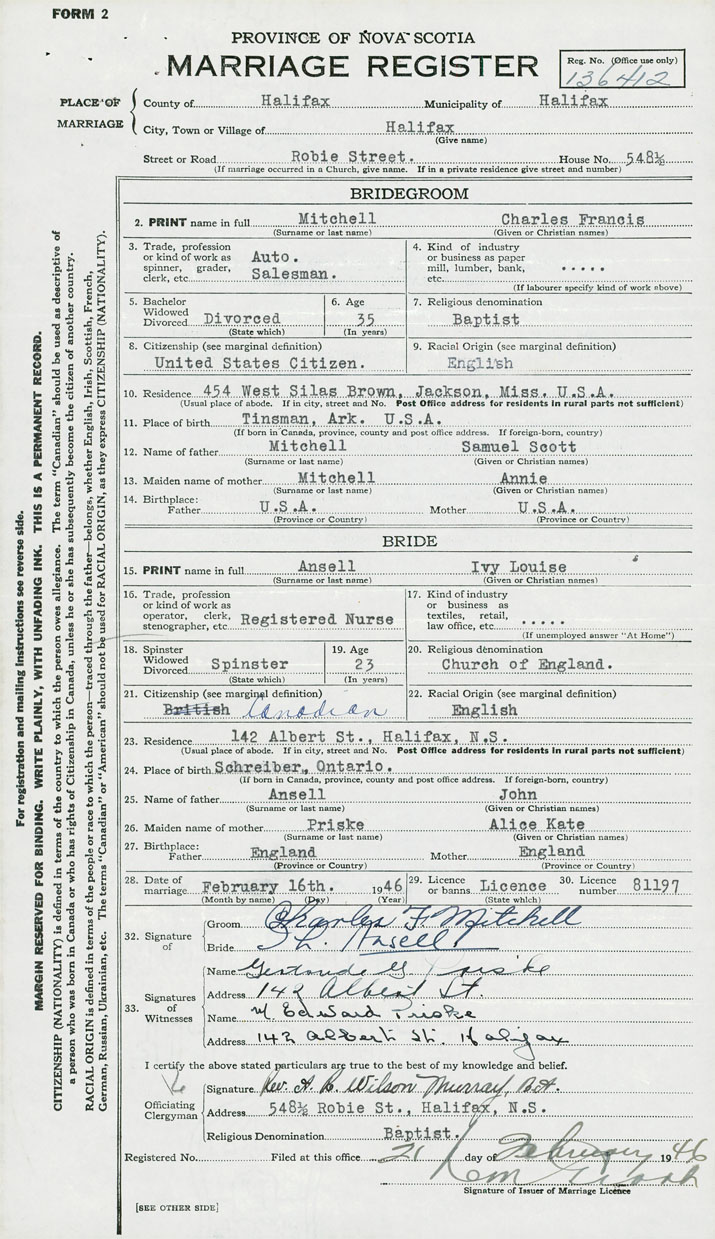 FORM 2
PROVINCE OF NOVA SCOTIA
MARRIAGE REGISTER
Reg. No. (Office use only)
136412
PLACE OF MARRIAGE
County of Halifax Municipality of Halifax
City, Town or Village of Halifax
(Give name)
Street or Road Robie Street. House No. 548½
(If marriage occurred in a Church, give name. If in a private residence give street and number)
BRIDEGROOM
2. PRINT name in full Mitchell Charles Francis
(Surname or last name) (Given or Christian names)
3. Trade, profession or kind of work as spinner, grader, clerk, etc. Auto. Salesman.
4. Kind of industry or business as paper mill, lumber, bank, etc. .....
(If labourer specify kind of work above)
5. Bachelor Widowed Divorced Divorced
(State which)
6. Age 35
(In years)
7. Religious denomination
Baptist
8. Citizenship (see marginal definition)
United States Citizen.
9. Racial Origin (see marginal definition)
English
10. Residence 454 West Silas Brown, Jackson, Miss. U.S.A.
(Usual place of abode. If in city, street and No. Post Office address for residents in rural parts not sufficient)
11. Place of birth Tinsman, Ark. U.S.A.
(If born in Canada, province, county and post office address. If foreign-born, country)
12. Name of father Mitchell Samuel Scott
(Surname or last name) (Given or Christian names)
13. Maiden name of mother Mitchell Annie
(Surname or last name) (Given or Christian names)
14. Birthplace: Father U.S.A. Mother U.S.A.
(Province or Country) (Province or Country)
BRIDE
15. PRINT name in full Ansell Ivy Louise
(Surname or last name) (Given or Christian names)
16. Trade, profession or kind of work as operator, clerk, stenographer, etc. Registered Nurse
17. Kind of industry or business as textiles, retail, law office, etc. .....
(If unemployed answer "At Home")
18. Spinster Widowed Divorced Spinster
(State which)
19. Age 23
(In years)
20. Religious denomination
Church of England.
21. Citizenship (see marginal definition)
British Canadian
22. Racial Origin (see marginal definition)
English
23. Residence 142 Albert St., Halifax, N.S.
(Usual place of abode. If in city, street and No. Post Office address for residents in rural parts not sufficient)
24. Place of birth Schreiber, Ontario.
(If born in Canada, province, county and post office address. If foreign-born, country)
25. Name of father Ansell John
(Surname or last name) (Given or Christian names)
26. Maiden name of mother Priske Alice Kate
(Surname or last name) (Given or Christian names)
27. Birthplace: Father England Mother England
(Province or Country) (Province or Country)
28. Date of marriage February 16th. 1946
(Month by name) (Day) (Year)
29. Licence or banns Licence
(State which)
30. Licence number 81197
32. Signature of
Groom Charles F. Mitchell
Bride Ansell
33. Signatures of Witnesses
Name Gertrude G Priske
Address 142 Albert St.
Name Edward Priske
Address 142 Albert St. Halifax
I certify the above stated particulars are true to the best of my knowledge and belief.
Officiating Clergyman
Signature Rev. A. Wilson Murray,
Address 548½ Robie St., Halifax, N.S.
Religious Denomination Baptist.
Registered No. Filed at this office 21 day of February 1946
Signature of Issuer of Marriage Licence
[SEE OTHER SIDE]
For registration and mailing instructions see reverse side.
MARGIN RESERVED FOR BINDING. WRITE PLAINLY, WITH UNFADING INK. THIS IS A PERMANENT RECORD.
CITIZENSHIP (NATIONALITY) is defined in terms of the country to which the person owes allegiance. The term "Canadian" should be used as descriptive of
a person who was born in Canada or who has rights of Citizenship in Canada, unless he or she has subsequently become the citizen of another country.
RACIAL ORIGIN is defined in terms of the people or race to which the person—traced through the father—belongs, whether English, Irish, Scottish, French,
German, Russian, Ukrainian, etc. The terms "Canadian" or "American" should not be used for RACIAL ORIGIN, as they express CITIZENSHIP (NATIONALITY).